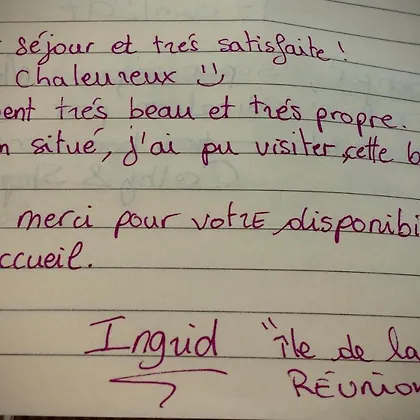 séjour et trés satisfaite !
Chaleureux
ent trés beau et trés propre.
n situé, j'ai pu visiter cette b
merci pour votre disponibi
ccueil.
Ingrid "île de la
RÉUNION